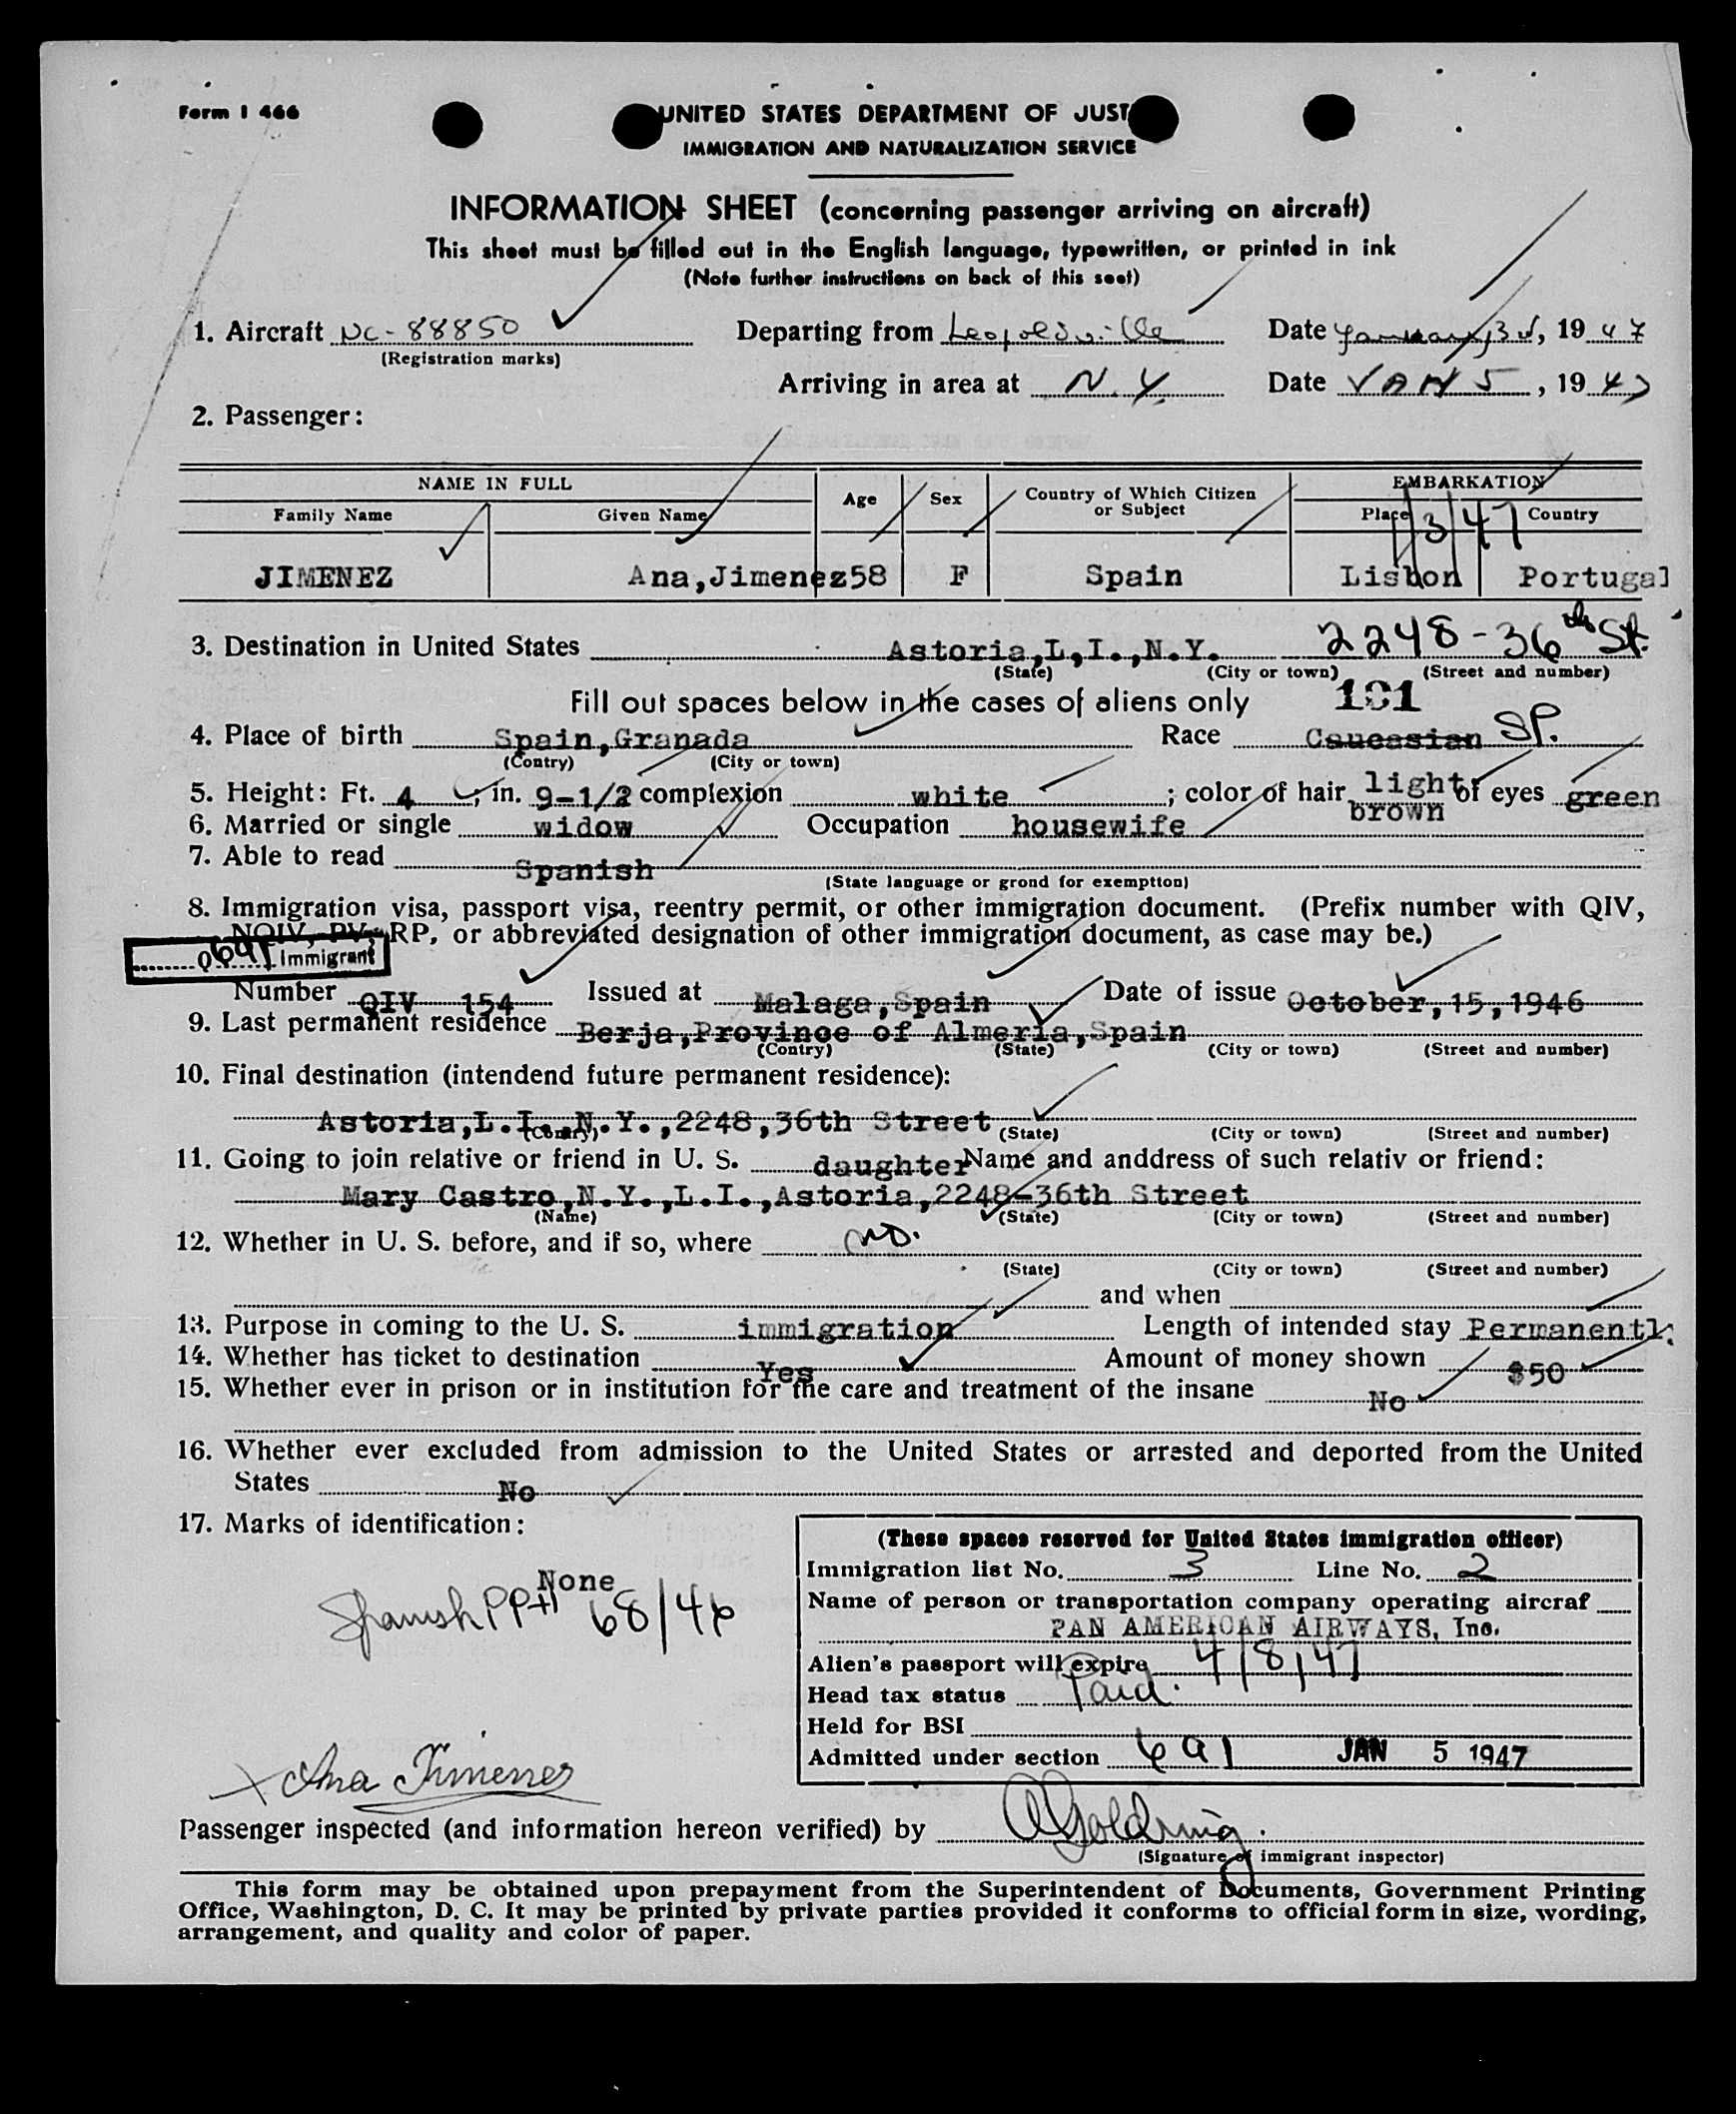 Form I 466
UNITED STATES DEPARTMENT OF JUST
IMMIGRATION AND NATURALIZATION SERVICE
INFORMATION SHEET (concerning passenger arriving on aircraft)
This sheet must be filled out in the English language, typewritten, or printed in ink
(Note further instructions on back of this seet)
1. Aircraft NC-88850 Departing from Leopoldville Date January 3d, 1947
(Registration marks)
Arriving in area at N.Y. Date JAN 5, 1947
2. Passenger:
NAME IN FULL Age Sex Country of Which Citizen or Subject EMBARKATION
Family Name Given Name Place Country
1/3/47
JIMENEZ Ana,Jimenez 58 F Spain Lisbon Portugal
3. Destination in United States Astoria,L,I.,N.Y. 2248-36th St.
(State) (City or town) (Street and number)
Fill out spaces below in the cases of aliens only 101
4. Place of birth Spain,Granada Race Caucasian SP.
(Contry) (City or town)
5. Height: Ft. 4, in. 9-1/2 complexion white; color of hair light brown of eyes green
6. Married or single widow Occupation housewife
7. Able to read Spanish
(State language or grond for exemption)
8. Immigration visa, passport visa, reentry permit, or other immigration document. (Prefix number with QIV,
NQIV, PV, RP, or abbreviated designation of other immigration document, as case may be.)
Q 691 Immigrant
Number QIV 154 Issued at Malaga,Spain Date of issue October,15,1946
9. Last permanent residence Berja,Province of Almeria,Spain
(Contry) (State) (City or town) (Street and number)
10. Final destination (intendend future permanent residence):
Astoria,L.I.,N.Y.,2248,36th Street
(Contry) (State) (City or town) (Street and number)
11. Going to join relative or friend in U. S. daughter Name and anddress of such relativ or friend:
Mary Castro,N.Y.,L.I.,Astoria,2248-36th Street
(Name) (State) (City or town) (Street and number)
12. Whether in U. S. before, and if so, where no.
(State) (City or town) (Street and number)
and when
13. Purpose in coming to the U. S. immigration Length of intended stay Permanentl.
14. Whether has ticket to destination Yes Amount of money shown $50
15. Whether ever in prison or in institution for the care and treatment of the insane No
16. Whether ever excluded from admission to the United States or arrested and deported from the United
States No
17. Marks of identification:
None
Spanish PP# 68/46
(These spaces reserved for United States immigration officer)
Immigration list No. 3 Line No. 2
Name of person or transportation company operating aircraf
PAN AMERICAN AIRWAYS, Inc.
Alien's passport will expire 4/8/47
Head tax status Paid.
Held for BSI
Admitted under section 6a1 JAN 5 1947
X Ana Jimenez
Passenger inspected (and information hereon verified) by
(Signature of immigrant inspector)
This form may be obtained upon prepayment from the Superintendent of Documents, Government Printing
Office, Washington, D. C. It may be printed by private parties provided it conforms to official form in size, wording,
arrangement, and quality and color of paper.